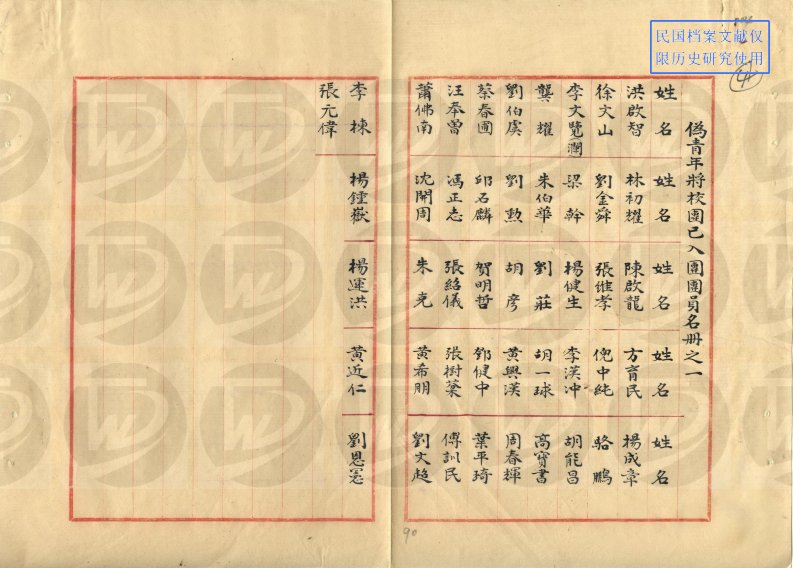 民国档案文献仅
限历史研究使用
偽青年將校團已入團團員名册之一
姓名 姓名 姓名 姓名 姓名
洪啟智 林初耀 陳啟龍 方育民 楊成章
徐文山 劉金舜 張維孝 倪中純 駱鵬
李文覽瀾 梁幹 楊健生 李漢冲 胡能昌
龔耀 朱伯華 劉莊 胡一球 高寶書
劉伯虞 劉勲 胡彦 黃興漢 周春輝
蔡春圃 邱石麟 賀明哲 鄧健中 葉平琦
汪奉曾 馮正志 張紹儀 張樹葉 傅訓民
蕭佛南 沈開周 朱克 黃希朋 劉文超
李棟 楊鍾嶽 楊運洪 黃近仁 劉恩
張元偉
90